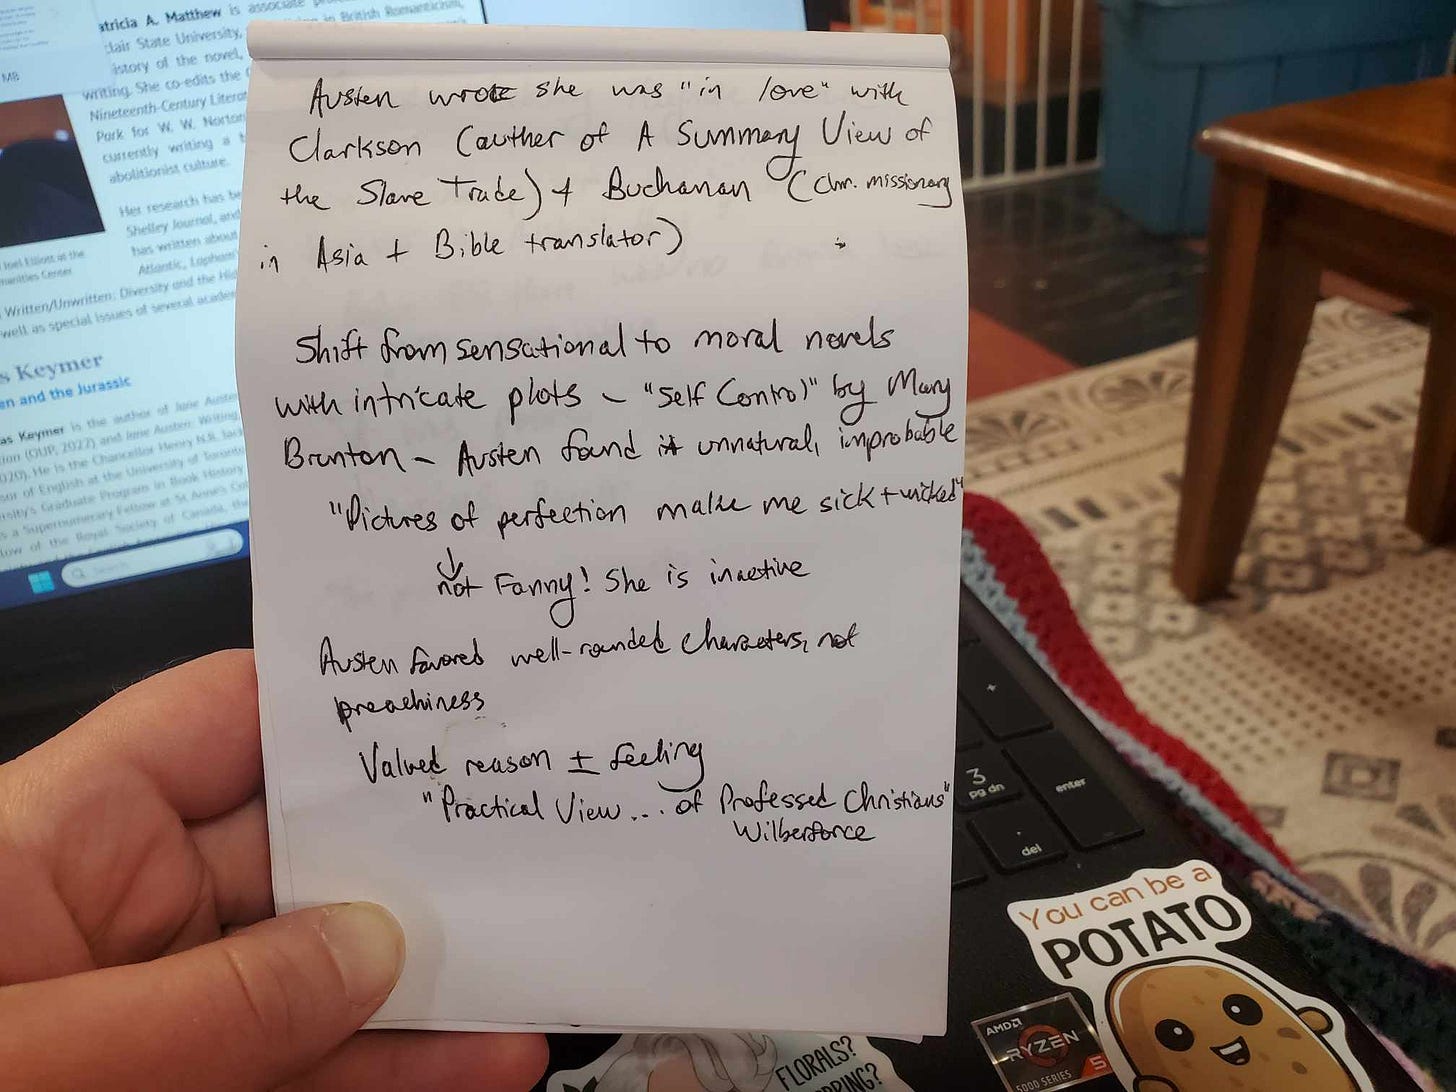 atricia A. Matthew is associate
clair State University,
in British Romanticism,
istory of the novel,
writing. She co-edits the
Nineteenth-Century
Park for W. W. Norton
currently writing a
abolitionist culture.
MB
Her research has
Shelley Journal, and
has written about
Atlantic,
Joel Elliott at the
manities Center
Written/Unwritten: Diversity and the
well as special issues of several
s Keymer
en and the Jurassic
as Keymer is the author of Jane Austen
(OUP, 2022) and Jane Austen: Writing,
020). He is the Chancellor Henry N.R. Jack
sor of English at the University of Toronto
rsity's Graduate Program in Book History
s a Supernumerary Fellow at St Anne's
low of the Royal Society of Canada, the
Search
Austen wrote she was "in love" with
Clarkson (auther of A Summary View of
the Slave Trade) + Buchanan (Chr. missionary
in Asia + Bible translator)
Shift from sensational to moral novels
with intricate plots – "Self Control" by Mary
Brunton – Austen found it unnatural, improbable
"Pictures of perfection make me sick + wicked"
↓
not Fanny! She is inactive
Austen favored well-rounded characters, not
preachiness
Valued reason ± feeling
"Practical View... of Professed Christians"
Wilberforce
+
3
pg dn
enter
.
del
You can be a
POTATO
AMD
RYZEN
5
5000 SERIES
FLORALS?